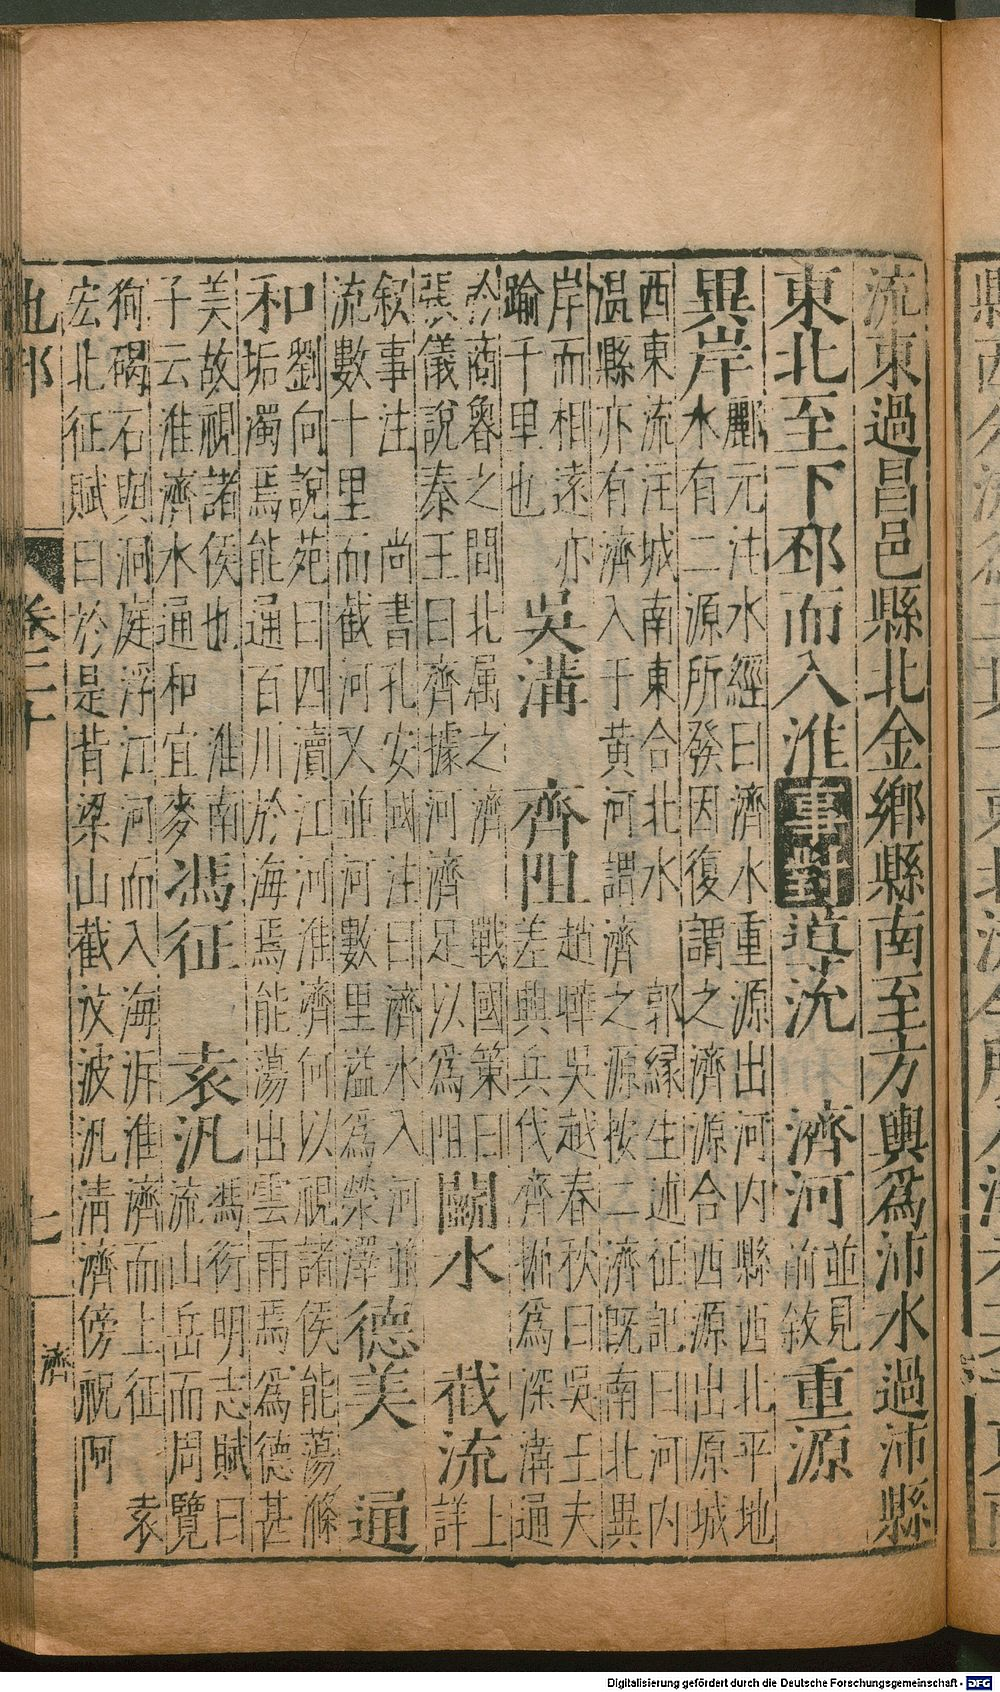 流東過昌邑縣北金鄉縣南至方輿爲沛水過沛縣
東北至下邳而入淮事對道沇 濟河並見前敘 重源
異岸酈元注水經曰濟水重源出河內縣西北平地
水有二源所發因復謂之濟源合西源出原城
西東流注城南東合北水 郭緣生述征記曰河內
溫縣亦有濟入于黃河謂濟之源按二濟旣南北異
岸而相遠亦
踰千里也 吳溝 齊阻趙曄吳越春秋曰吳王夫
差興兵代齊掘爲深溝通
於商魯之間北属之濟 戰國策曰
張儀說秦王曰齊據河濟足以爲阻 關水 截流上
詳
敘事注 尚書孔安國注曰濟水入河並
流數十里而截河又並河數里溢爲滎澤 德美 通
和劉向說苑曰四瀆江河淮濟何以視諸侯能蕩滌
垢濁焉能通百川於海焉能蕩出雲雨焉爲德甚
美故視諸侯也 淮南
子云淮濟水通和宜麥 馮征 袁汎馮衍明志賦曰
流山岳而周覽
狥碣石與洞庭浮江河而入海泝淮濟而上征 袁
宏北征賦曰於是背梁山截汶波汎清濟傍祝阿
九部 卷三十 七 濟
Digitalisierung gefördert durch die Deutsche Forschungsgemeinschaft - DFG